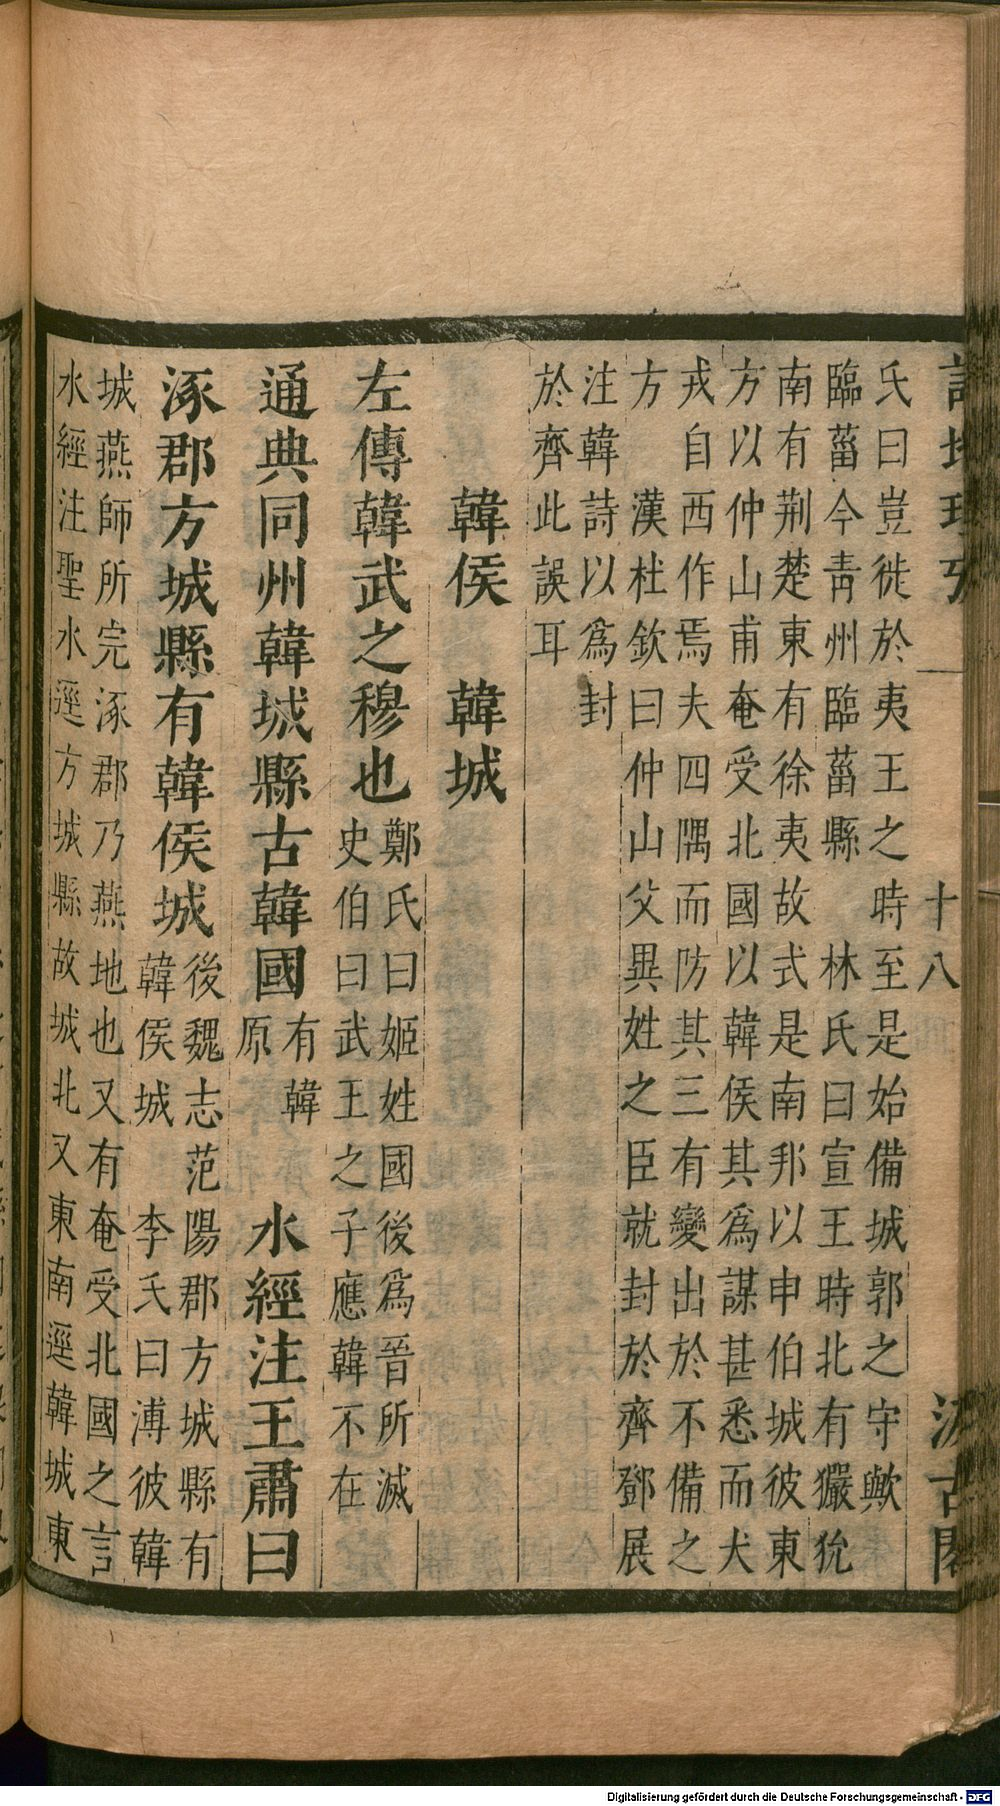 詩地理攷 十八 汲古閣
氏曰豈徙於夷王之時至是始備城郭之守歟
臨菑今青州臨菑縣 林氏曰宣王時北有玁狁
南有荆楚東有徐夷故式是南邦以申伯城彼東
方以仲山甫奄受北國以韓侯其爲謀甚悉而犬
戎自西作焉夫四隅而防其三有變出於不備之
方 漢杜欽曰仲山父異姓之臣就封於齊鄧展
注韓詩以爲封
於齊此誤耳
韓侯 韓城
左傳韓武之穆也 鄭氏曰姬姓國後爲晉所滅
史伯曰武王之子應韓不在
通典同州韓城縣古韓國 有韓
原 水經注王肅曰
涿郡方城縣有韓侯城 後魏志范陽郡方城縣有
韓侯城 李氏曰溥彼韓
城燕師所完涿郡乃燕地也又有奄受北國之言
水經注聖水逕方城縣故城北又東南逕韓城東
Digitalisierung gefördert durch die Deutsche Forschungsgemeinschaft - DFG